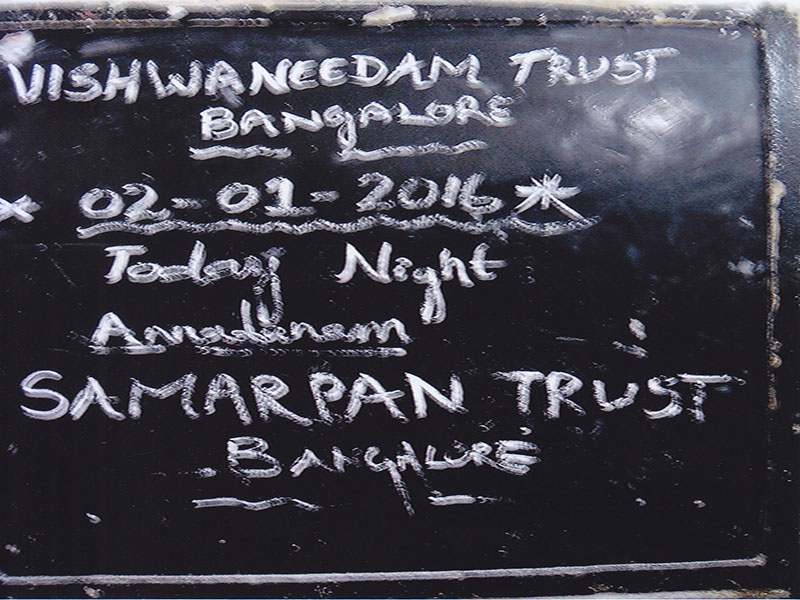 VISHWANEEDAM TRUST
BANGALORE
* 02-01-2016 *
Today Night
Annadanam
SAMARPAN TRUST
BANGALORE